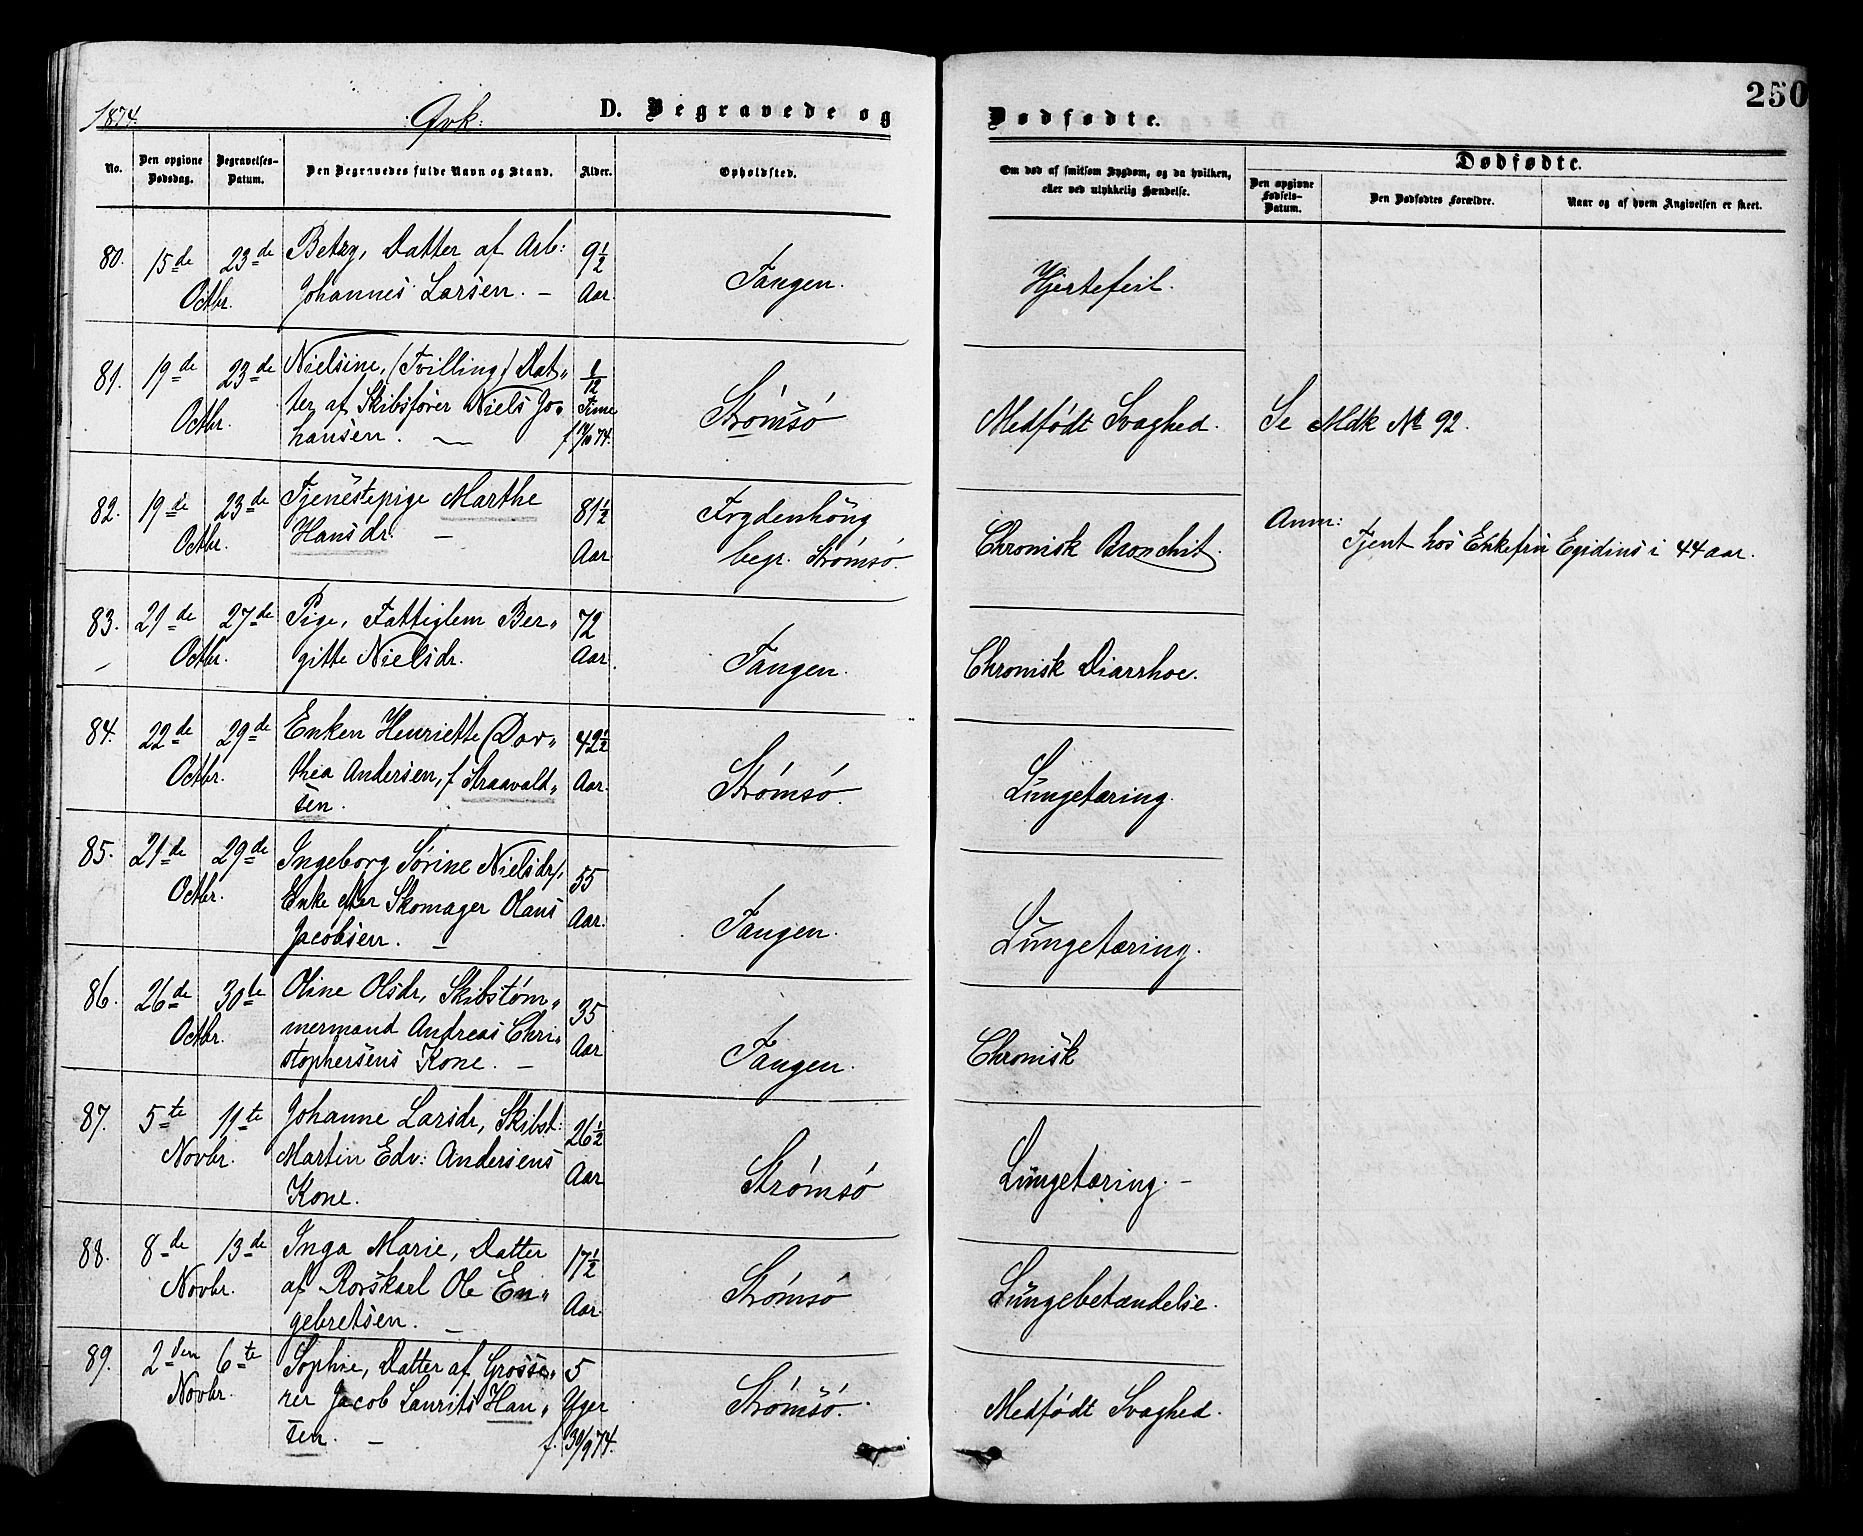 1874. Qvk: D. Begravede og
Dødfødte.
250
No.
Den opgivne Dødsdag.
Begravelses-Datum.
Den Begravedes fulde Navn og Stand.
Alder.
Opholdsted.
Om død af smitsom Sygdom, og da hvilken,
eller ved ulykkelig Hændelse.
Dødfødte.
Den opgivne Fødsels-Datum.
Den Dødfødtes Forældre.
Naar og af hvem Angivelsen er skeet.
80. 15de 23de Betzy, Datter af Arb: 9½
Octbr. Johannes Larsen. – Aar. Tangen. Hjertefeil.
81. 19de 23de Nielsine, (Tvilling) Dat„
Octbr. ter af Skibsfører Niels Jo„ 1/12 Time Strømsø Medfødt Svaghed. Se Mdk № 92.
hansen. – f 19/10 74.
82. 19de 23de Tjenestepige Marthe 81½ Frydenhöug
Octbr. Hansdr. – Aar begr. Strømsø. Chronisk Bronchit. Anm: Tjent hos Enkefru Egidius i 44 aar.
83. 21de 27de Pige, Fattiglem Ber„ 72
– Octbr. gitte Nielsdr. Aar. Tangen. Chronisk Diarrhoe.
84. 22de 29de Enken Henriette (Dor„ 42½
Octbr. thea Andersen, f Straavald„ Aar. Strømsø. Lungetæring.
sen.
85. 21de 29de Ingeborg Sørine Nielsdr,
Octbr. Enke efter Skomager Olaus 55 Aar. Tangen. Lungetæring.
Jacobsen. –
86. 26de 30te Oline Olsdr, Skibstøm„
Octbr. mermand Andreas Chri„ 35 Aar Tangen. Chronisk
stophersens Kone. –
87. 5te 11te Johanne Larsdr, Skibst:
Novbr. Martin Edv: Andersens 26½ Aar Strømsø Lungetæring. –
Kone.
88. 8de 13de Inga Marie, Datter
Novbr. af Rorskarl Ole En„ 17½ Aar. Strømsø Lungebetændelse.
gebretsen. –
89. 2den 6te Sophie, Datter af Grosse„ 5
Novbr. rer Jacob Laurits Han„ Uger Strømsø. Medfødt Svaghed.
sen. – f. 30/9 74.